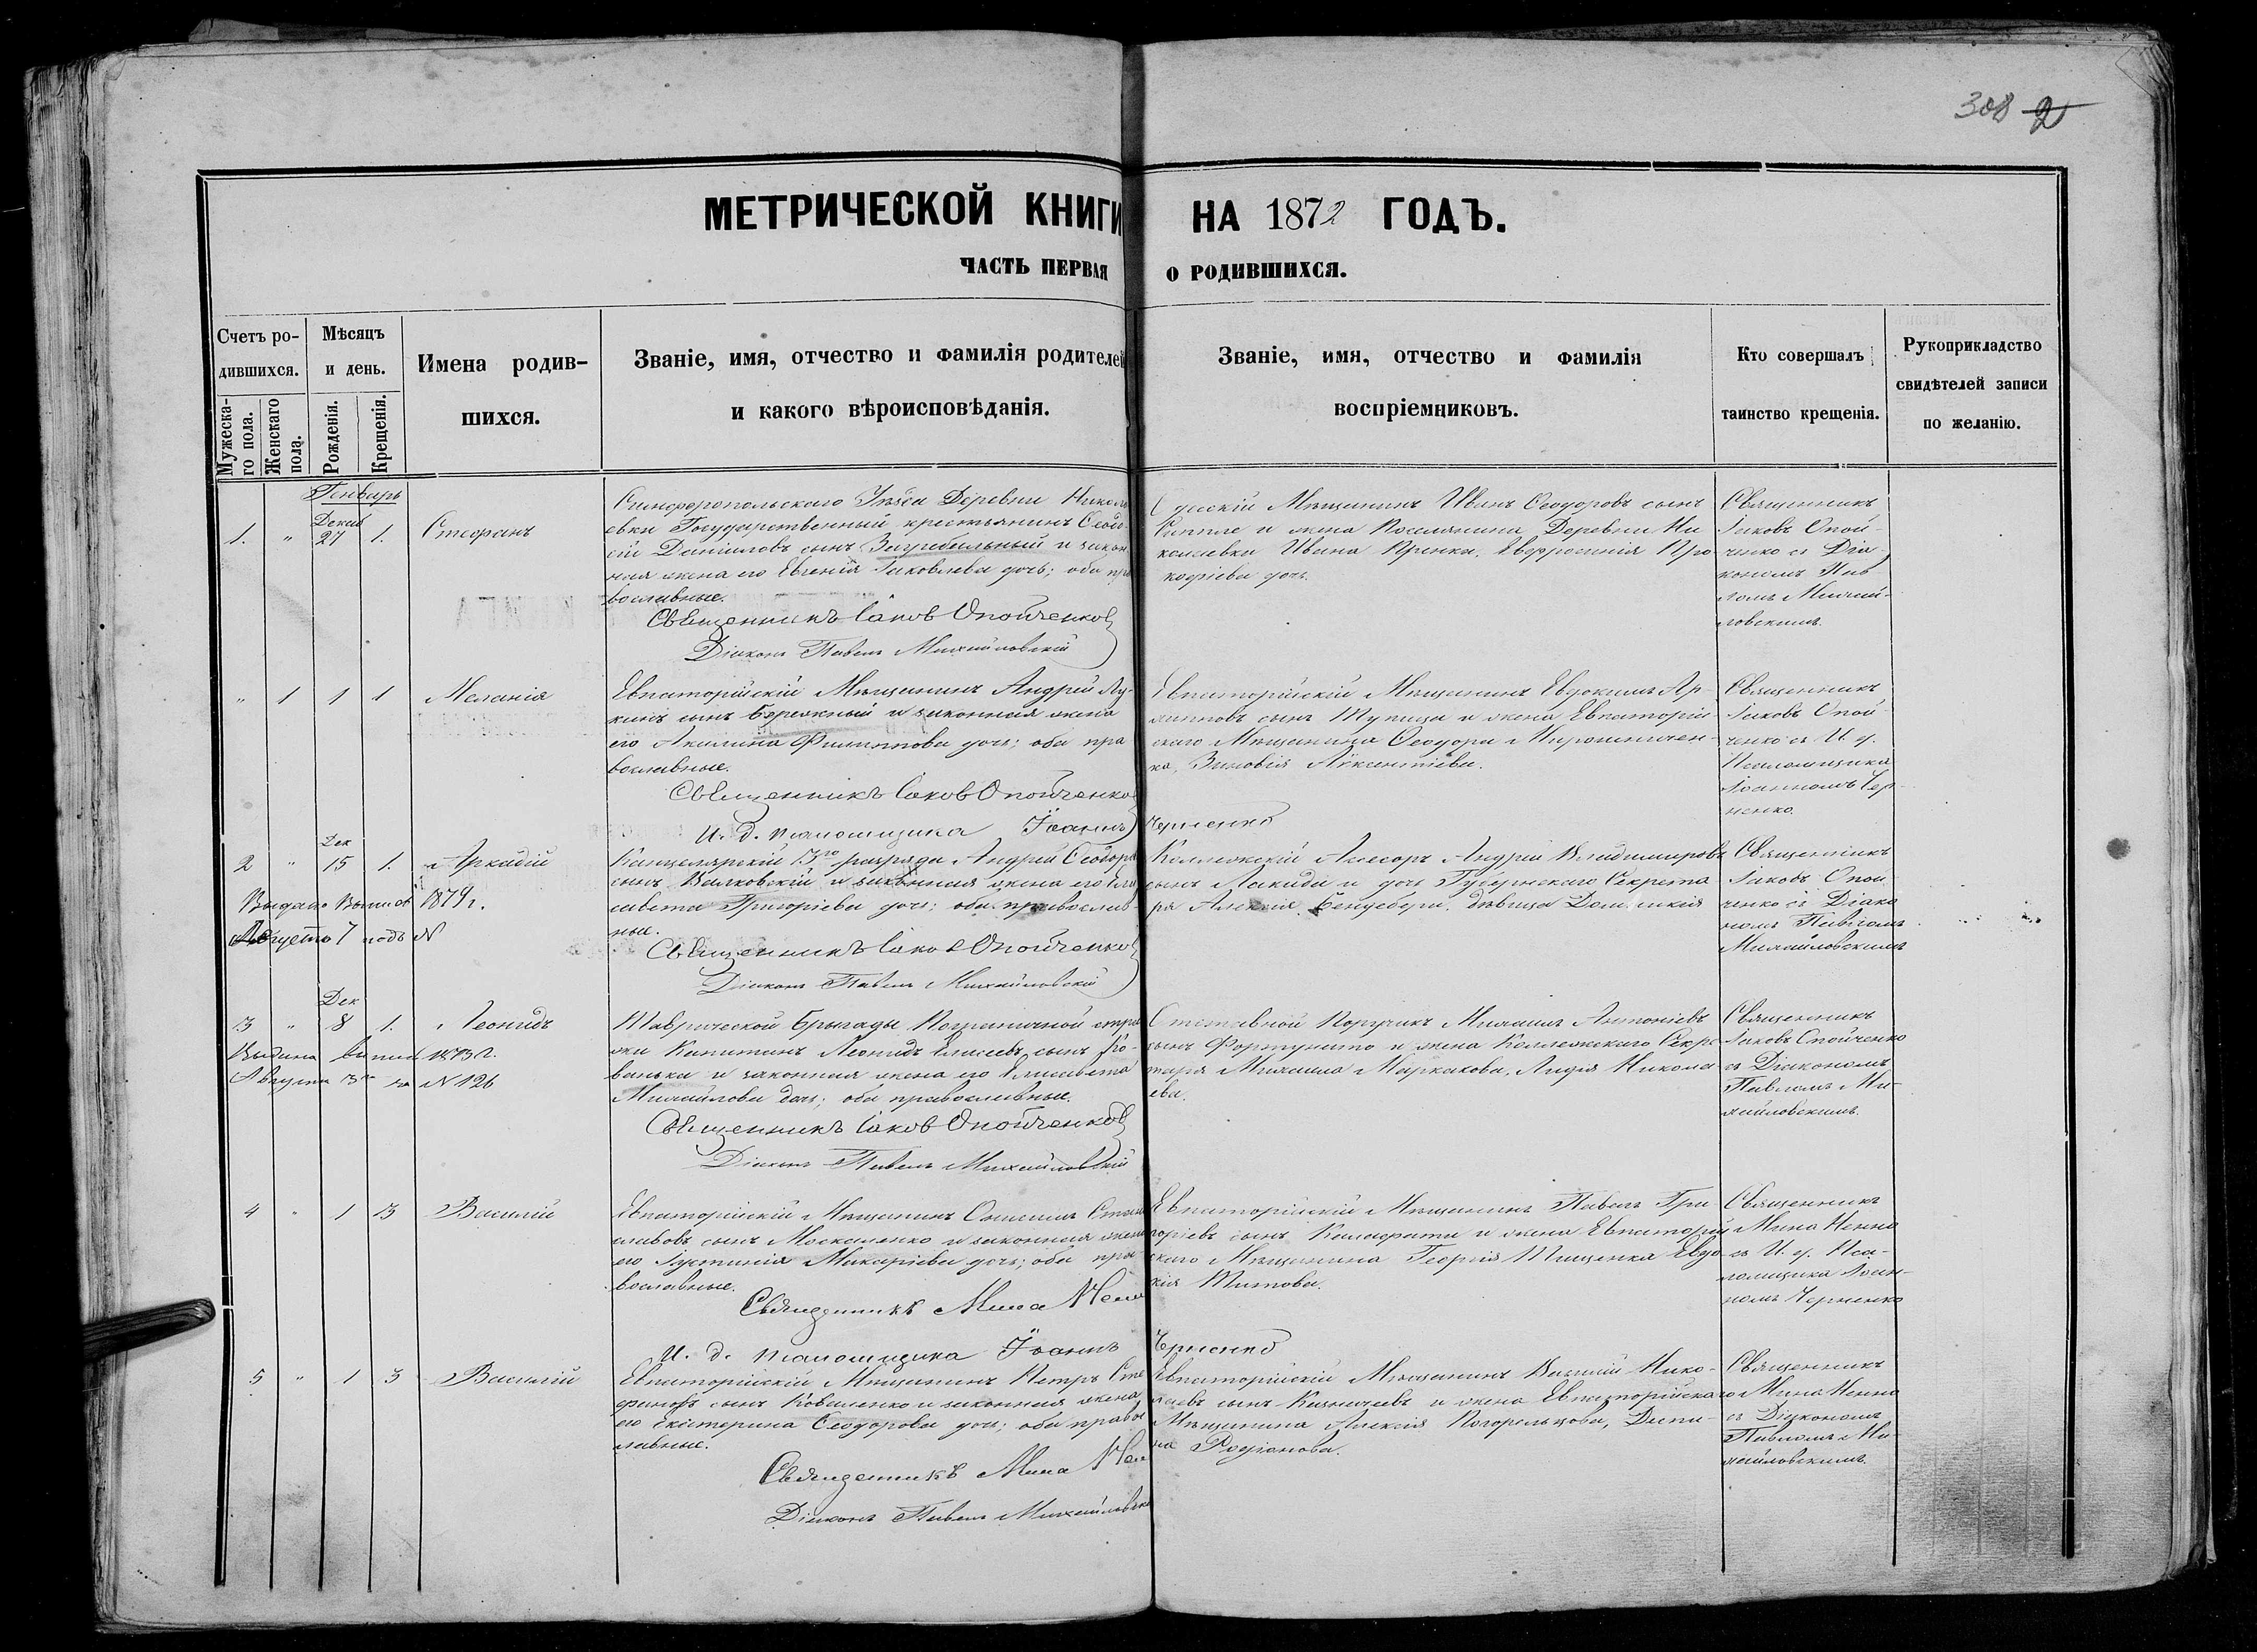 308 2
МЕТРИЧЕСКОЙ КНИГИ НА 1872 ГОДЪ.
ЧАСТЬ ПЕРВАЯ О РОДИВШИХСЯ.
Счетъ родившихся.
Мужескаго пола.
Женскаго пола.
Мѣсяцъ и день.
Рожденія.
Крещенія.
Имена родив-
шихся.
Званіе, имя, отчество и фамилія родителей
и какого вѣроисповѣданія.
Званіе, имя, отчество и фамилія
воспріемниковъ.
Кто совершалъ
таинство крещенія.
Рукоприкладство
свидѣтелей записи
по желанію.
Генварь
Декаб
1. " 27 1. Стефанъ
Симферопольскаго Уѣзда Деревни Никола
евки Государственный крестьянинъ Феодо-
сій Даніиловъ сынъ Загребельный и закон
ная жена его Евгенія Іаковлева дочь; оба пра
вославные.
Священникъ Іаковъ Опойченковъ
Діаконъ Павелъ Михайловскій
Одесскій Мѣщанинъ Иванъ Феодоровъ сынъ
и жена Поселянина Деревни Ни
колаевки Ивана Евфросинія Про
кофіева дочь.
Священникъ
Іаковъ Опой-
ченко съ Діа-
кономъ Пав
ломъ Михай-
ловскимъ.
" 1 1 1 Меланія
Евпаторійскій Мѣщанинъ Андрей Лу-
кинъ сынъ Бережный и законная жена
его Акилина Филиппова дочь; оба пра
вославные.
Священникъ Іаковъ Опойченковъ
И. д. псаломщика Іоаннъ Черненко
Евпаторійскій Мѣщанинъ Евдокимъ Ар-
хиповъ сынъ Тупица и жена Евпаторій
скаго Мѣщанина Феодора Мирошничен-
ка, Зиновія Авксентіева.
Священникъ
Іаковъ Опой
ченко съ И. д.
Псаломщика
Іоанномъ Чер
ненко.
Дек
2 " 15 1. Аркадій
Выдано 1879 г.
Августа 7 подъ N
Канцелярскій 3го разряда Андрей Феодоро
сынъ Волковскій и законная жена его Ели
савета Григоріева дочь; оба православ-
ные.
Священникъ Іаковъ Опойченковъ
Діаконъ Павелъ Михайловскій
Коллежскій Ассесоръ Андрей Владимировъ
сынъ Лакида и дочь Губернскаго Секрета
ря Алексія девица
Священникъ
Іаковъ Опой
ченко съ Діако
номъ Павломъ
Михайловскимъ
Дек
3 " 8 1. Леонидъ
Выдана 1873 г.
Августа за N 126
Таврической Бригады Пограничной стра
жи Капитанъ Леонидъ Елисеевъ сынъ Ко-
ванька и законная жена его Елисавета
Михайлова дочь; оба православные.
Священникъ Іаковъ Опойченковъ
Діаконъ Павелъ Михайловскій
Отставной Поручикъ Михаилъ Антоніевъ
сынъ Фортунато и жена Коллежскаго Секре
таря Михаила Маркакова, Лидія Никола
ева.
Священникъ
Іаковъ Опойченко
съ Діакономъ
Павломъ Ми-
хайловскимъ.
4 " 1 3 Василій
Евпаторійскій Мѣщанинъ
сынъ Москаленко и законная жена
его Іустинія Макаріева дочь; оба пра-
вославные.
Священникъ Мина Ненно
И. д. псаломщика Іоаннъ Черненко
Евпаторійскій Мѣщанинъ Павелъ Гри
горіевъ сынъ Калафати и жена Евпаторій
скаго Мѣщанина Георгія Тищенка Евдо-
кія Титова.
Священникъ
Мина Ненно
съ И. д. Пса-
ломщика Іоан-
номъ Черненко
5 " 1 3 Василій
Евпаторійскій Мѣщанинъ Петръ Сте
фановъ сынъ Коваленко и законная жена
его Екатерина Феодорова дочь; оба правос
лавные.
Священникъ Мина Ненно
Діаконъ Павелъ Михайловскій
Евпаторійскій Мѣщанинъ Василій Нико-
лаевъ сынъ Казначеевъ и жена Евпаторійскаго
Мѣщанина Алексія Погорельцова,
Родіонова.
Священникъ
Мина Ненно
съ Діакономъ
Павломъ Ми-
хайловскимъ.